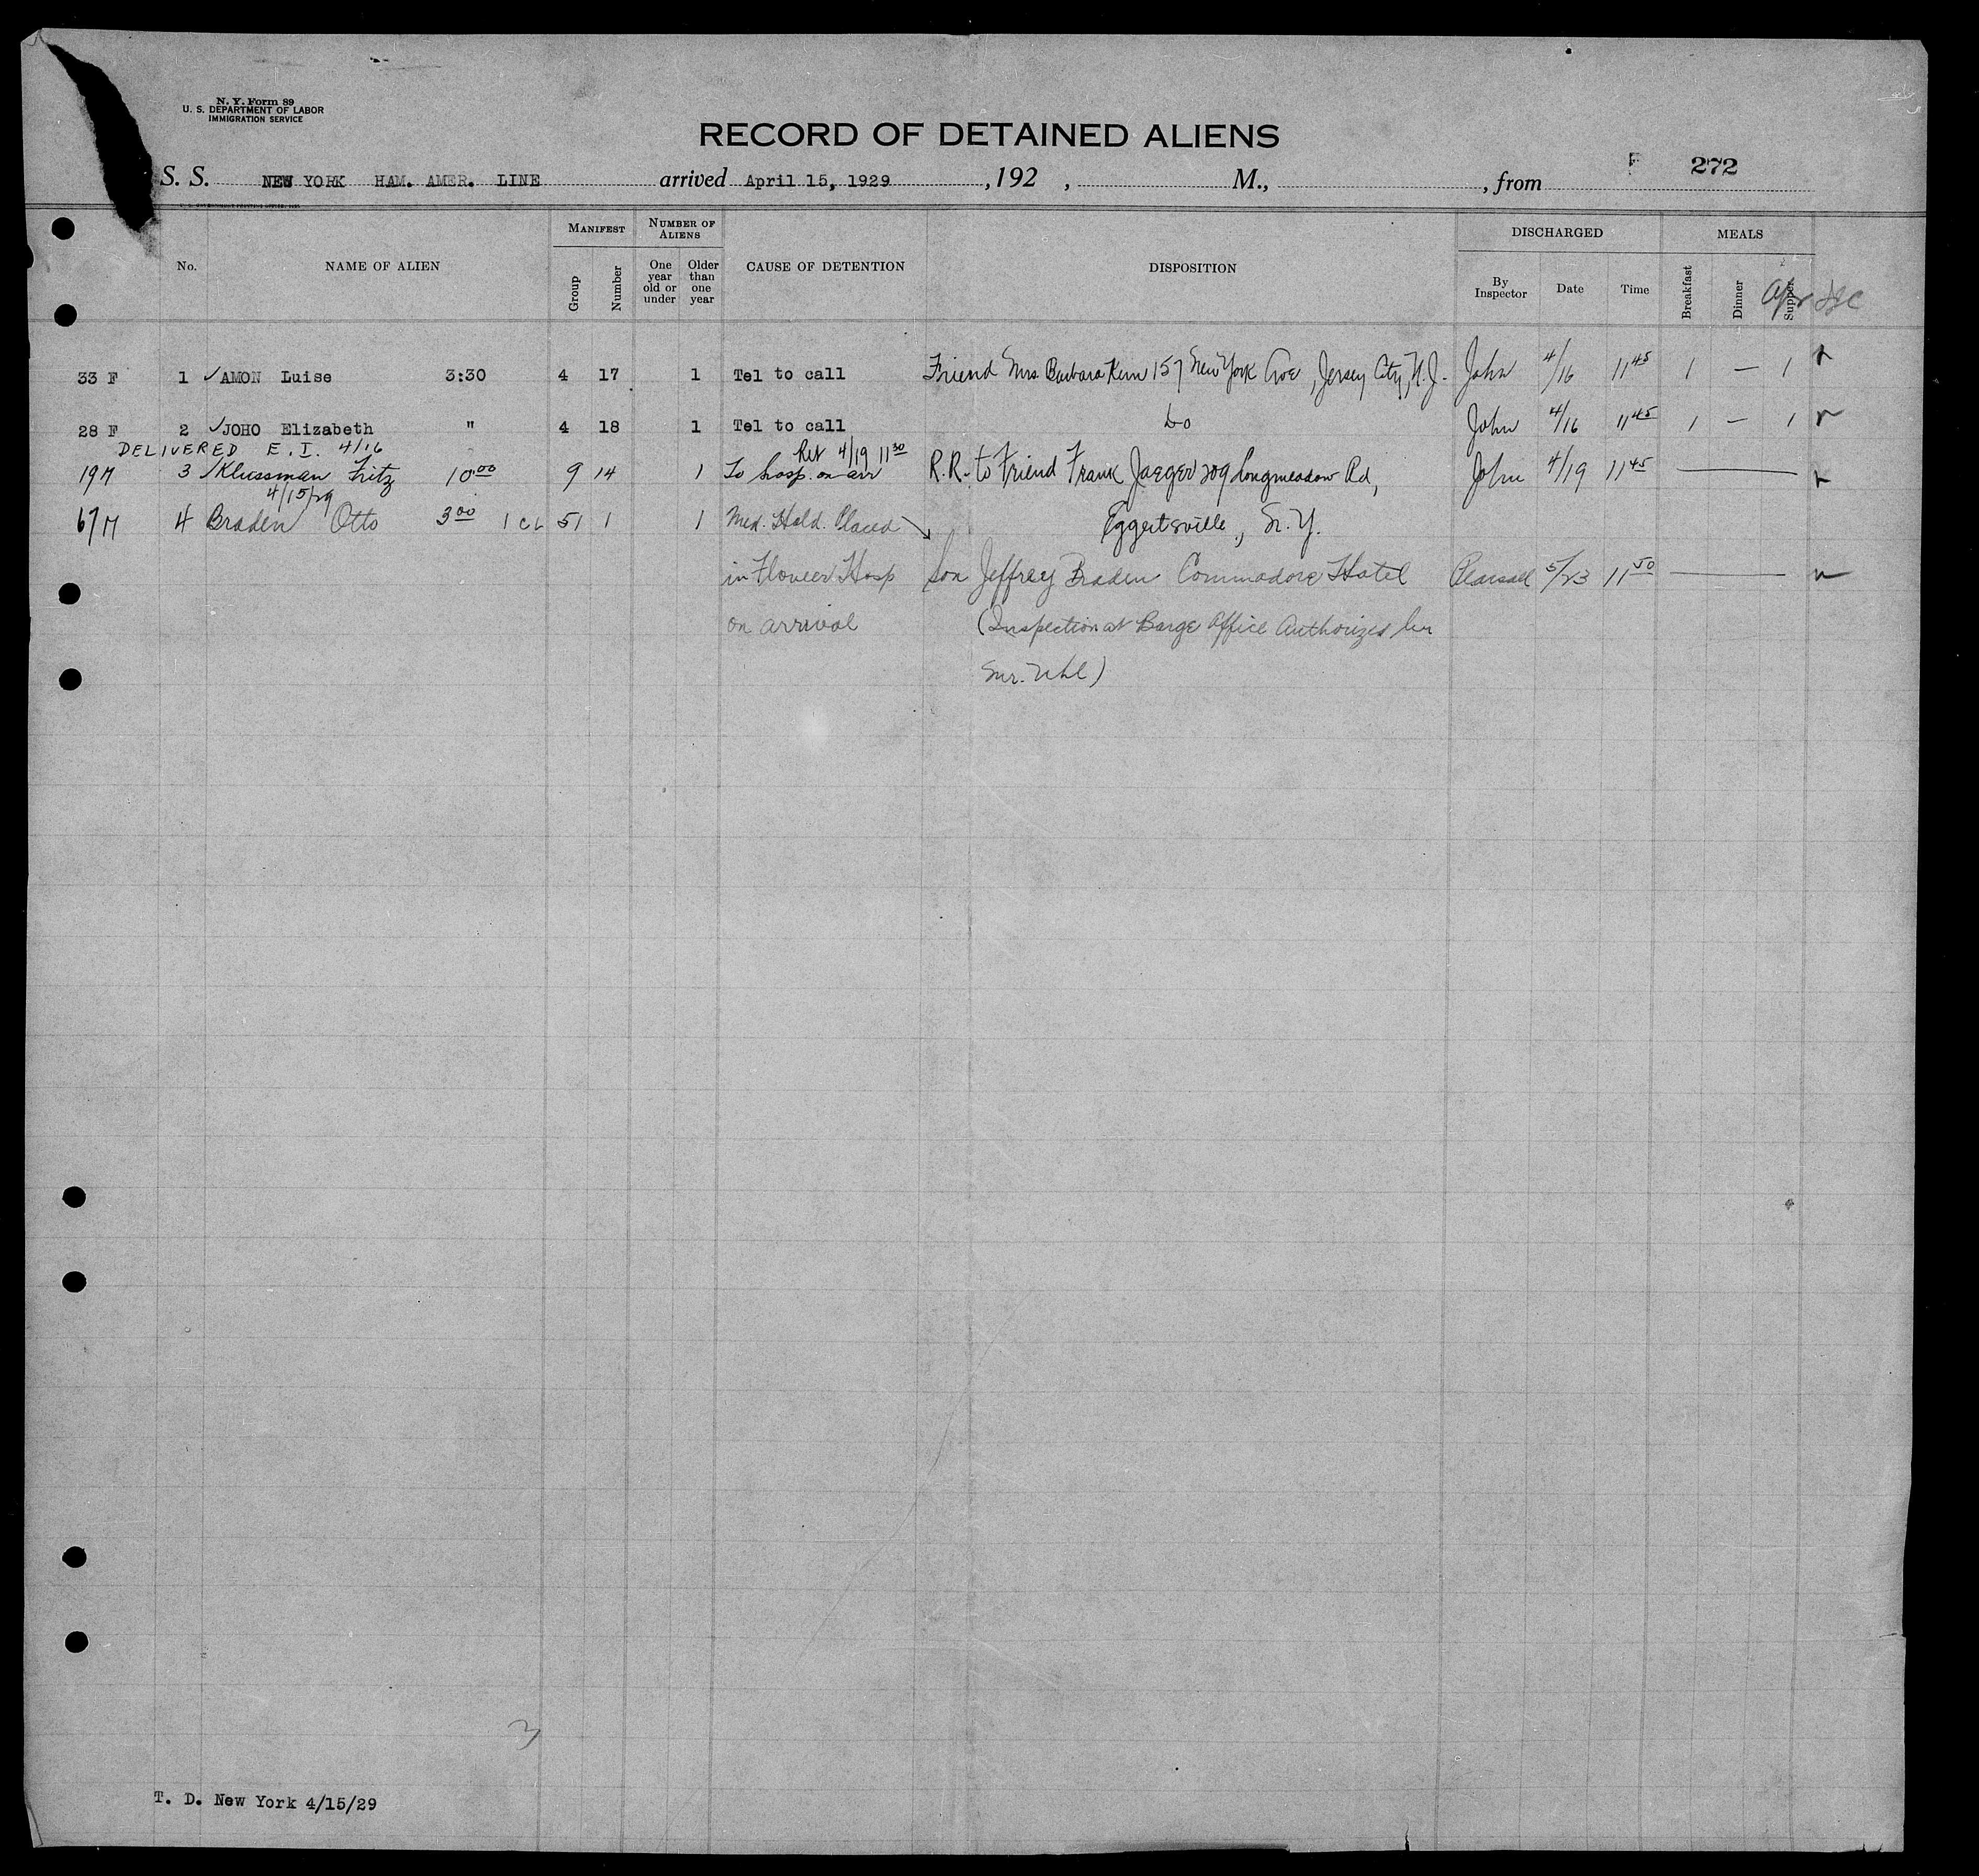 N. Y. Form 89
U. S. DEPARTMENT OF LABOR
IMMIGRATION SERVICE
RECORD OF DETAINED ALIENS
S. S. NEW YORK HAM. AMER. LINE arrived April 15, 1929, 192 , M., , from 272
MANIFEST NUMBER OF ALIENS DISCHARGED MEALS
No. NAME OF ALIEN Group Number One year old or under Older than one year CAUSE OF DETENTION DISPOSITION By Inspector Date Time Breakfast Dinner Supper
33 F 1 ✓AMON Luise 3:30 4 17 1 Tel to call Friend Mrs Barbara Kern 157 New York Ave, Jersey City, N.J. John 4/16 11 45 1 — 1
28 F 2 ✓JOHO Elizabeth " 4 18 1 Tel to call Do John 4/16 11 45 1 — 1
DELIVERED E. I. 4/16
Ret 4/19 11 30
19 M 3 ✓Klussman Fritz 10 00 9 14 1 To hosp. on arr R.R. to Friend Frank Jaeger 209 Longmeadow Rd, John 4/19 11 45
4/15/29
67 M 4 Braden Otto 3 00 1 CL 51 1 1 Med. Hold. Placed Eggertsville, N.Y.
in Flower Hosp Son Jeffrey Braden Commodore Hotel Pearsall 5/23 11 50
on arrival (Inspection at Barge Office Authorized by
Mr. Uhl)
T. D. New York 4/15/29